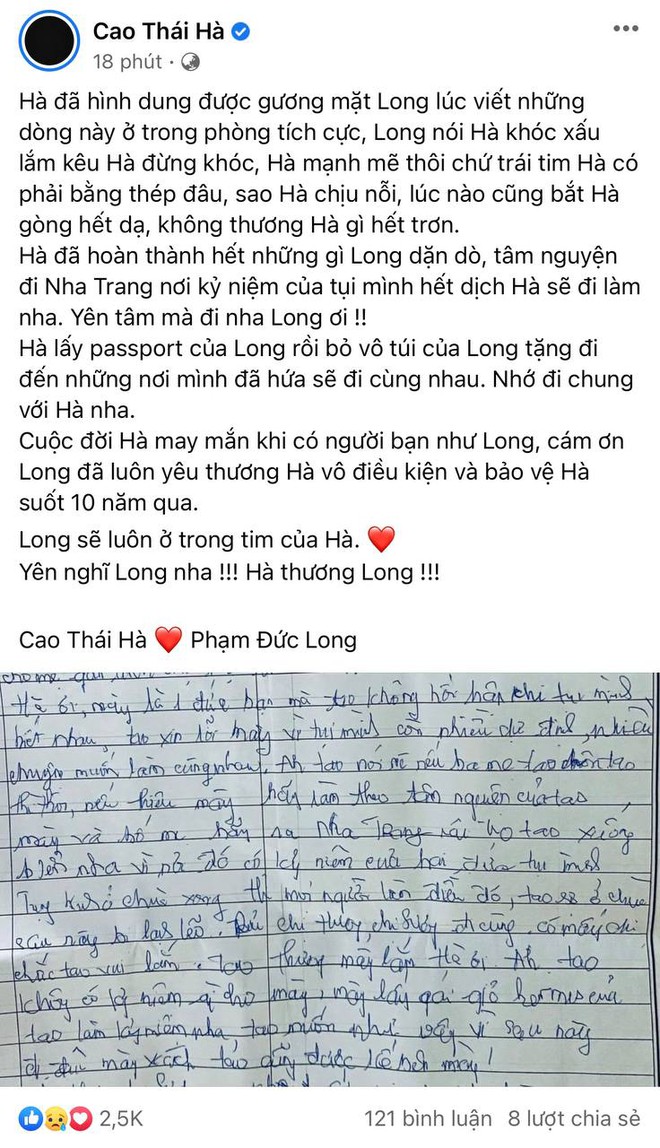 Cao Thái Hà
18 phút ·
Hà đã hình dung được gương mặt Long lúc viết những
dòng này ở trong phòng tích cực, Long nói Hà khóc xấu
lắm kêu Hà đừng khóc, Hà mạnh mẽ thôi chứ trái tim Hà có
phải bằng thép đâu, sao Hà chịu nỗi, lúc nào cũng bắt Hà
gòng hết dạ, không thương Hà gì hết trơn.
Hà đã hoàn thành hết những gì Long dặn dò, tâm nguyện
đi Nha Trang nơi kỷ niệm của tụi mình hết dịch Hà sẽ đi làm
nha. Yên tâm mà đi nha Long ơi !!
Hà lấy passport của Long rồi bỏ vô túi của Long tặng đi
đến những nơi mình đã hứa sẽ đi cùng nhau. Nhớ đi chung
với Hà nha.
Cuộc đời Hà may mắn khi có người bạn như Long, cám ơn
Long đã luôn yêu thương Hà vô điều kiện và bảo vệ Hà
suốt 10 năm qua.
Long sẽ luôn ở trong tim của Hà. ❤️
Yên nghĩ Long nha !!! Hà thương Long !!!
Cao Thái Hà ❤️ Phạm Đức Long
Hà ơi, mày là 1 đứa bạn mà tao không hối hận khi tụi mình
biết nhau, tao xin lỗi mày vì tụi mình còn nhiều dự định, nhiều
chuyện muốn làm cùng nhau. Ah tao nói nè nếu ba mẹ tao chôn tao
thì thôi, nếu thiêu mày hãy làm theo tâm nguyện của tao
mày và bố mẹ hãy ra Nha Trang rải tro tao xuống
biển nha vì nơi đó có kỷ niệm của hai đứa tụi mình
thì mọi người lên điện đó, tao sẽ ở chùa
chị thuý, đi cùng. có mấy chị
chắc tao vui lắm. Tao thương mày lắm Hà ơi. Ah tao
không có kỷ niệm gì cho mày, mày lấy cái giỏ hermes của
tao làm kỷ niệm nha tao muốn như vậy vì sau này
đi đâu mày xách tao cũng được kế bên mày!
2,5K
121 bình luận 8 lượt chia sẻ